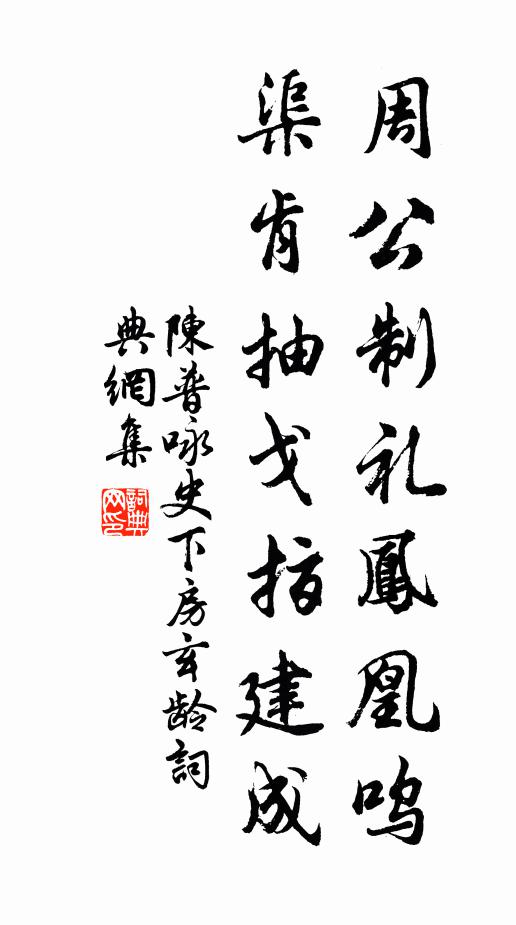 周公制礼鳳凰鸣
渠肯抽戈指建成
陳普咏史下房玄龄詞
典網集
詞典
网印